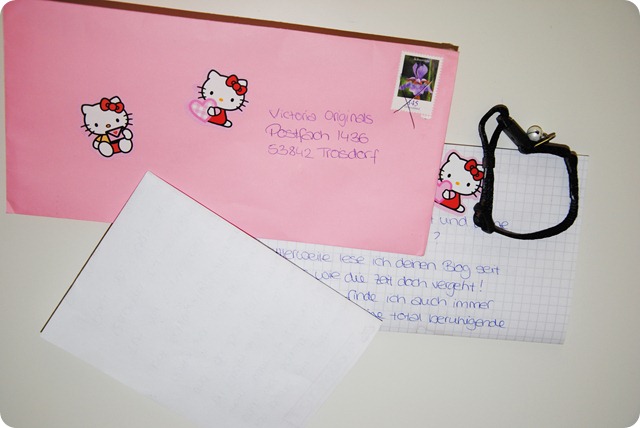 Victoria Originals
Postfach 1436
53842 Troisdorf
45
und
?
lese ich deinen Blog seit
wie die Zeit doch vergeht!
finde ich auch immer
total beruhigende